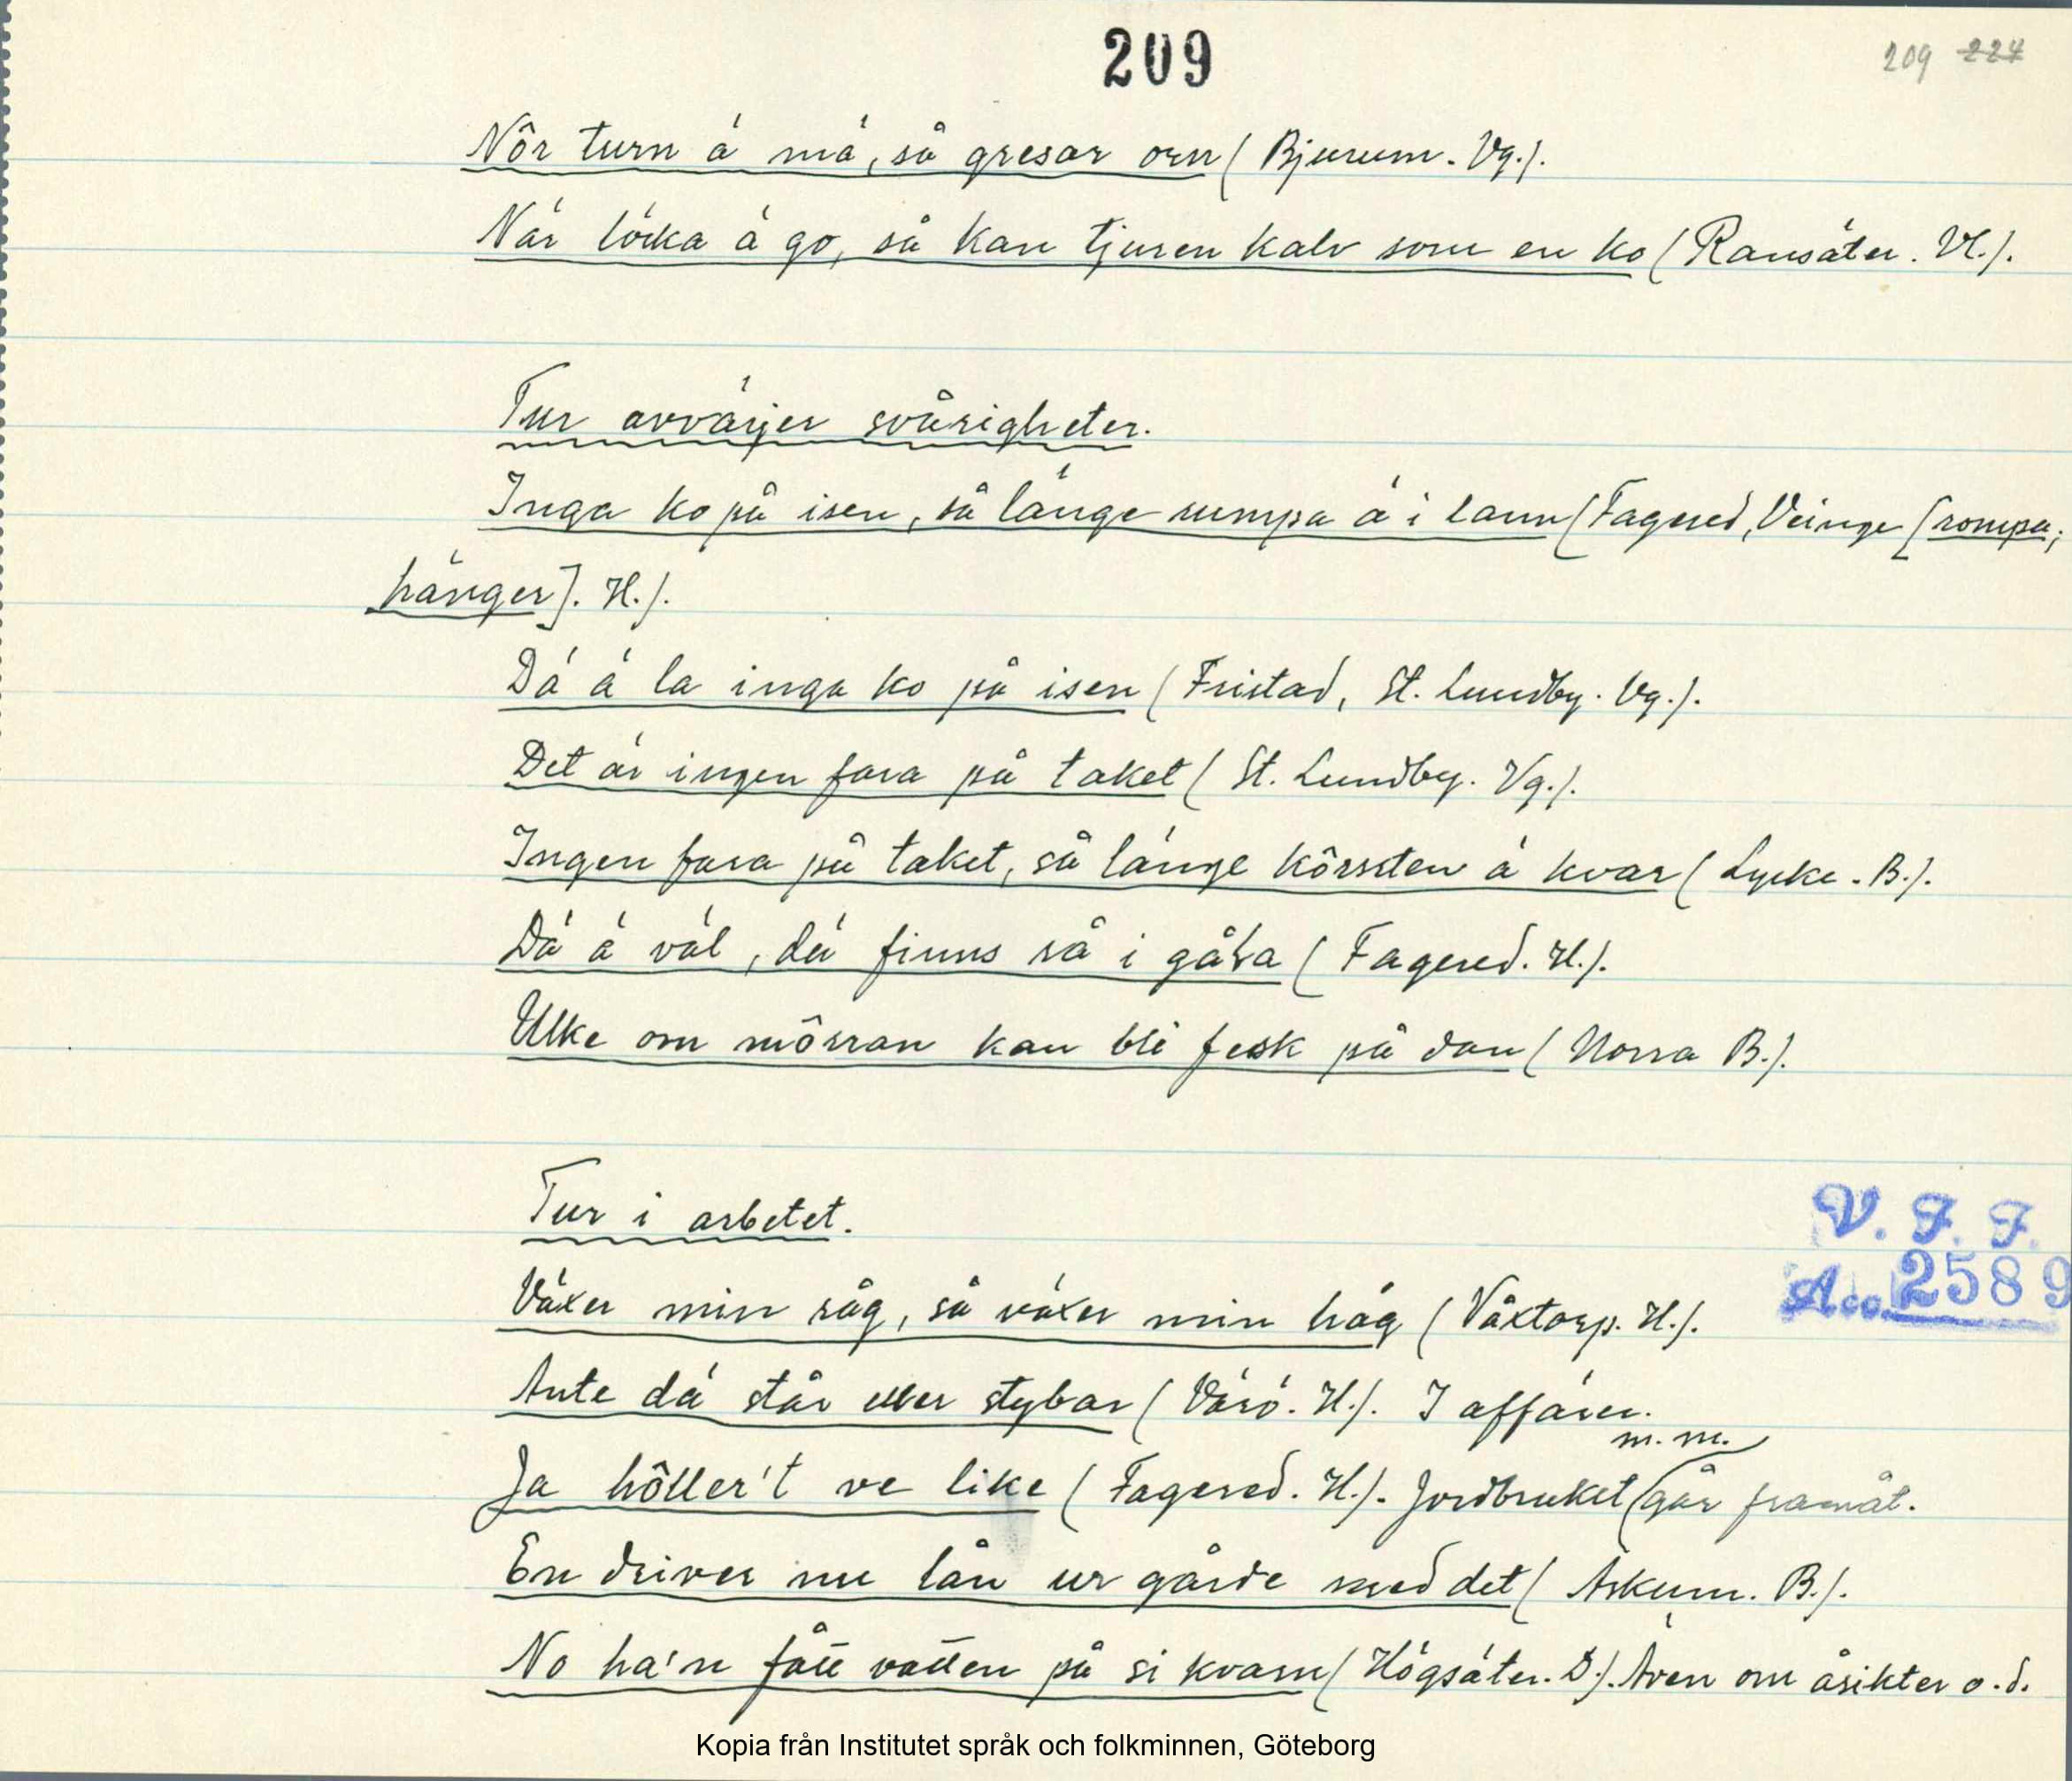 209
209 224
Nôr turn ä mä, så gresar orn (Bjurum. Vg.).
När löcka ä go, så kan tjuren kalv som en ko (Ransäter. Vl.).
Tur avvärjer svårigheter.
Inga ko på isen, så länge rumpa ä i lann (Fagered, Veinge [rompa;
hänger]. H.).
Dä ä la inga ko på isen (Fristad, St. Lundby. Vg.).
Det är ingen fara på taket (St. Lundby. Vg.).
Ingen fara på taket, så länge kôrsten ä kvar (Lycke. B.).
Dä ä väl, dä finns så i gåla (Fagered. H.).
Ulke om môrran kan bli fesk på dan (Norra B.).
Tur i arbetet.
Växer min råg, så växer min håg (Våxtorp. H.).
Ante dä står eller stybar (Värö. H.). I affärer.
m.m.
Ja hôller't ve like (Fagered. H.). Jordbruket går framåt.
En driver nu lån ur gårde med det (Askum. B.).
No ha'n fått vatten på si kvarn (Högsäter. D.). Även om åsikter o.d.
V. F. F.
Acc. 2589
Kopia från Institutet språk och folkminnen, Göteborg